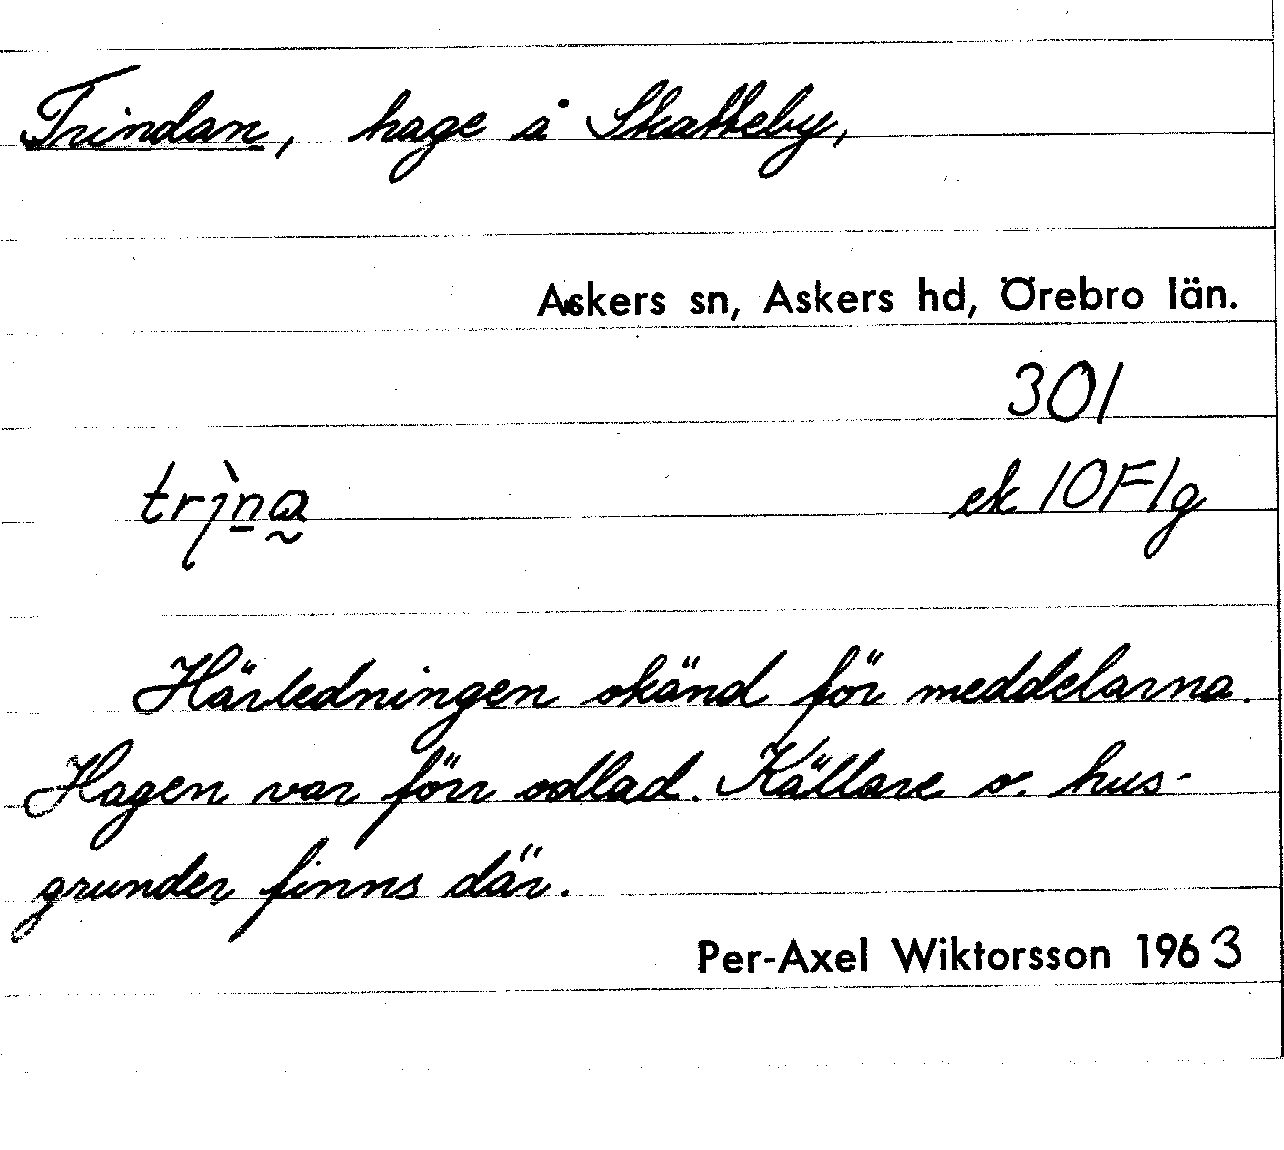 Trindan, hage å Skatteby,
Askers sn, Askers hd, Örebro län.
301
trìna ek 10F1g
Härledningen okänd för meddelarna.
Hagen var förr odlad. Källare o. hus-
grunder finns där.
Per-Axel Wiktorsson 1963